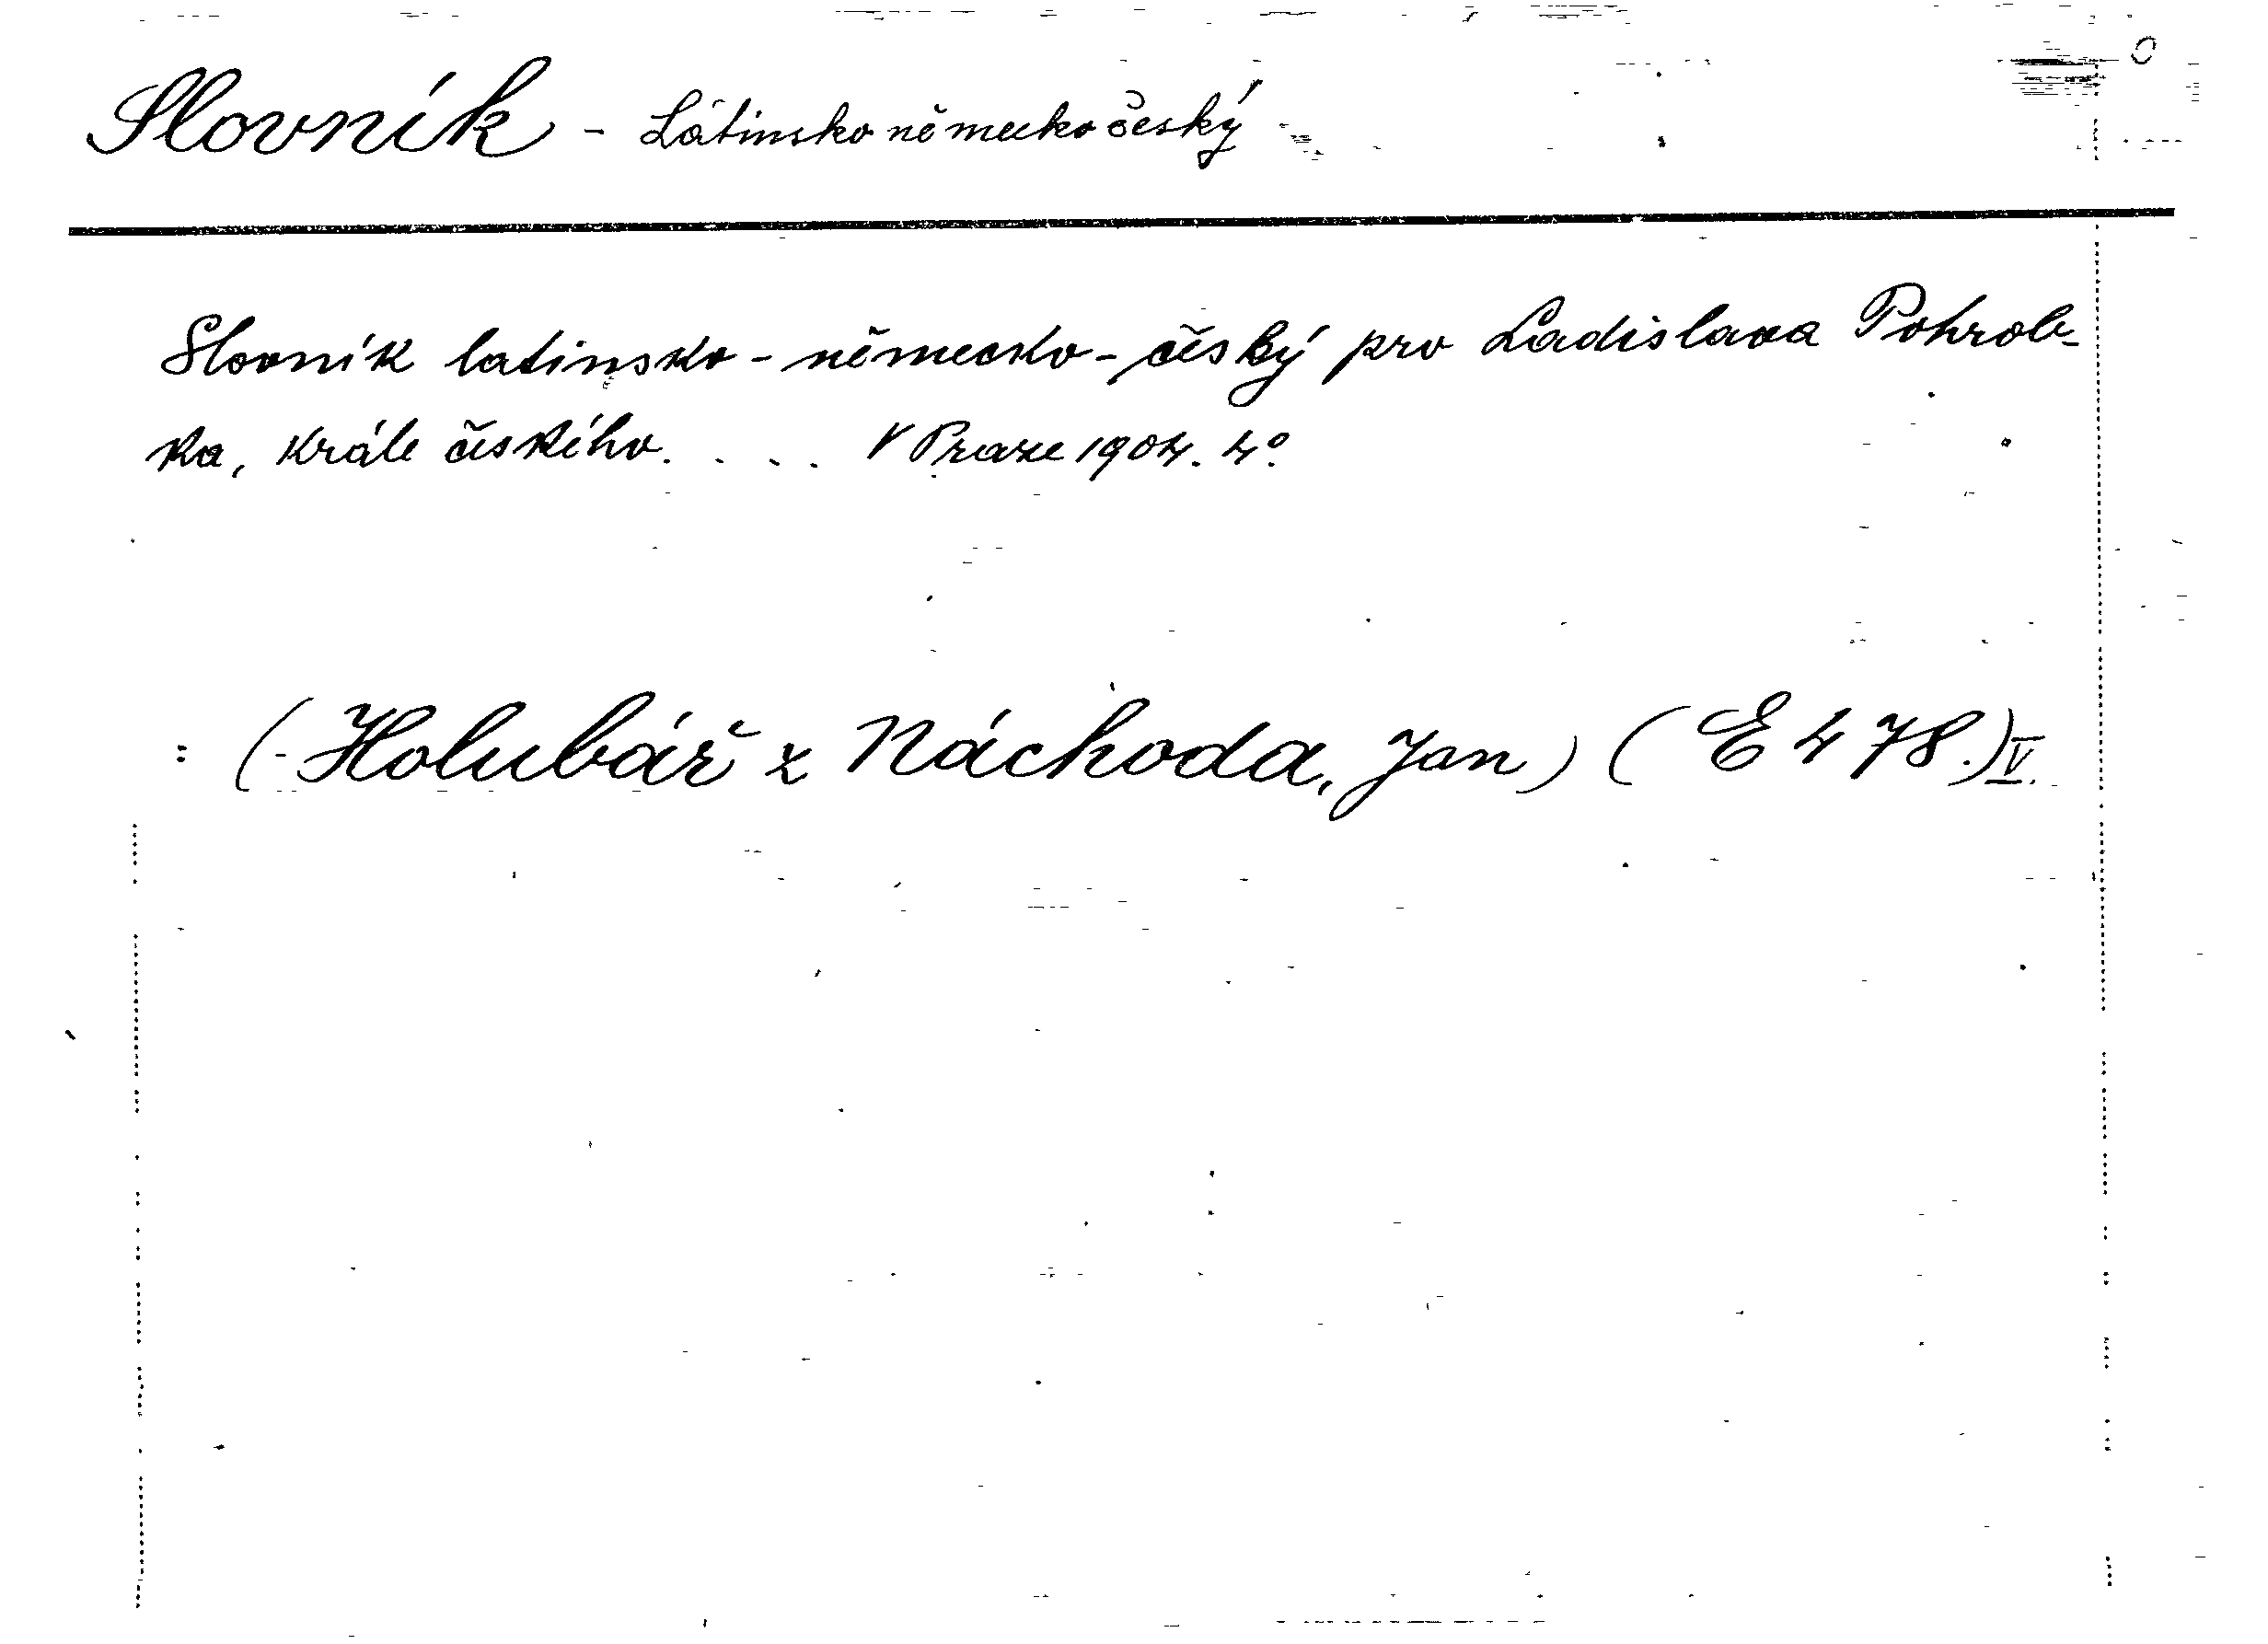 Slovník - Látinsko německo český
Slovník latinsko - německo - český pro Ladislava Pohrob-
ka, krále českého. . . . V Praze 1904. 4°.
: (Holubář z Náchoda, Jan) (E 478.) IV.